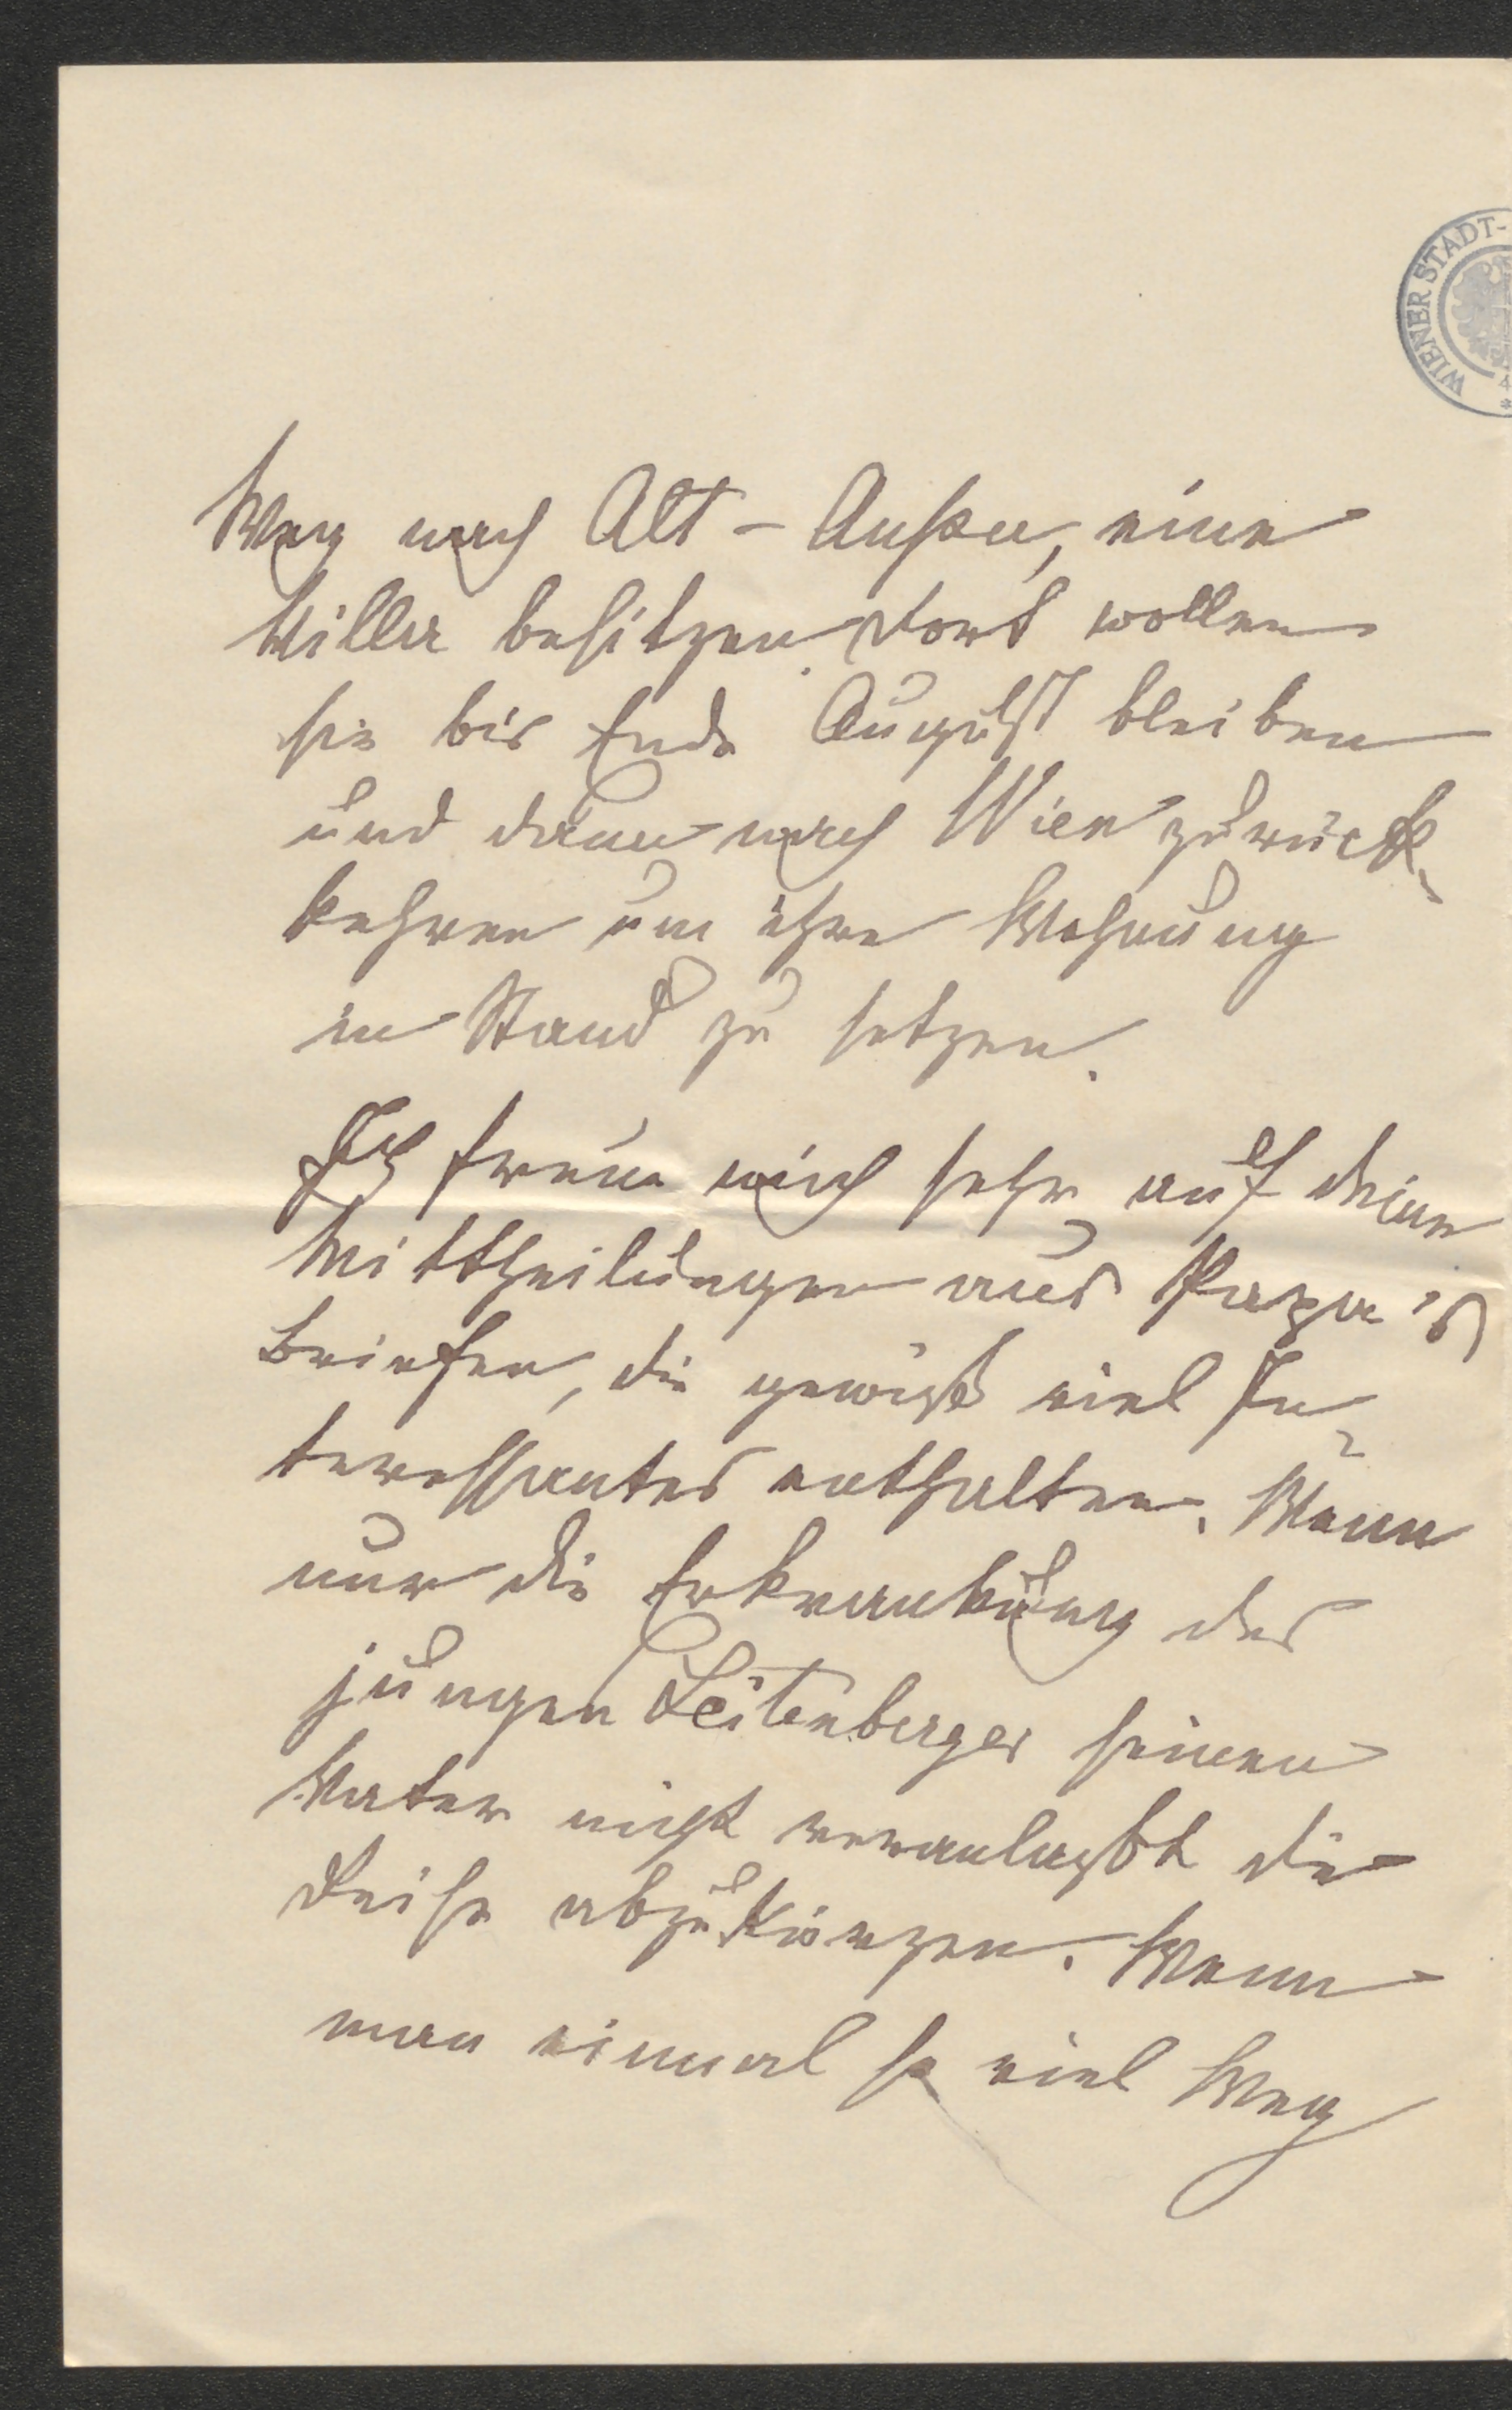 WIENER STADT-
Weg nach Alt-Aussee, eine
Villa besitzen. Dort wollen
sie bis Ende August bleiben
und dann nach Wien zurück
kehren um ihre Wohnung
in Stand zu setzen.
Ich freue mich sehr auf deine
Mittheilungen aus Papa's
Briefen, die gewiß viel In-
teressantes enthalten. Wenn
nur die Erkrankung des
jungen Leitenberger seinen
Vater nicht veranlaßt die
Reise abzukürzen. Wenn
man einmal so viel Weg